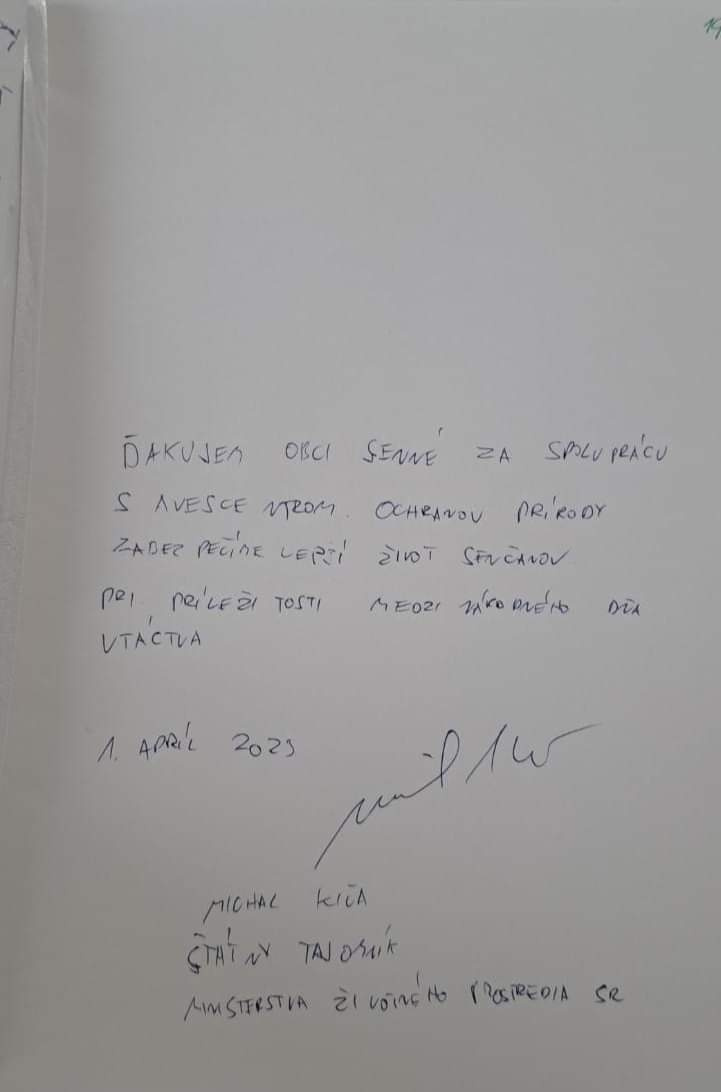 19
ĎAKUJEM OBCI SENNÉ ZA SPOLUPRÁCU
S AVESCENTROM. OCHRANOU PRÍRODY
ZABEZPEČÍME LEPŠÍ ŽIVOT SENČANOV
PRI PRÍLEŽITOSTI MEDZINÁRODNÉHO DŇA
VTÁCTVA
1. APRÍL 2023
MICHAL KIČA
ŠTÁTNY TAJOMNÍK
MINISTERSTVA ŽIVOTNÉHO PROSTREDIA SR